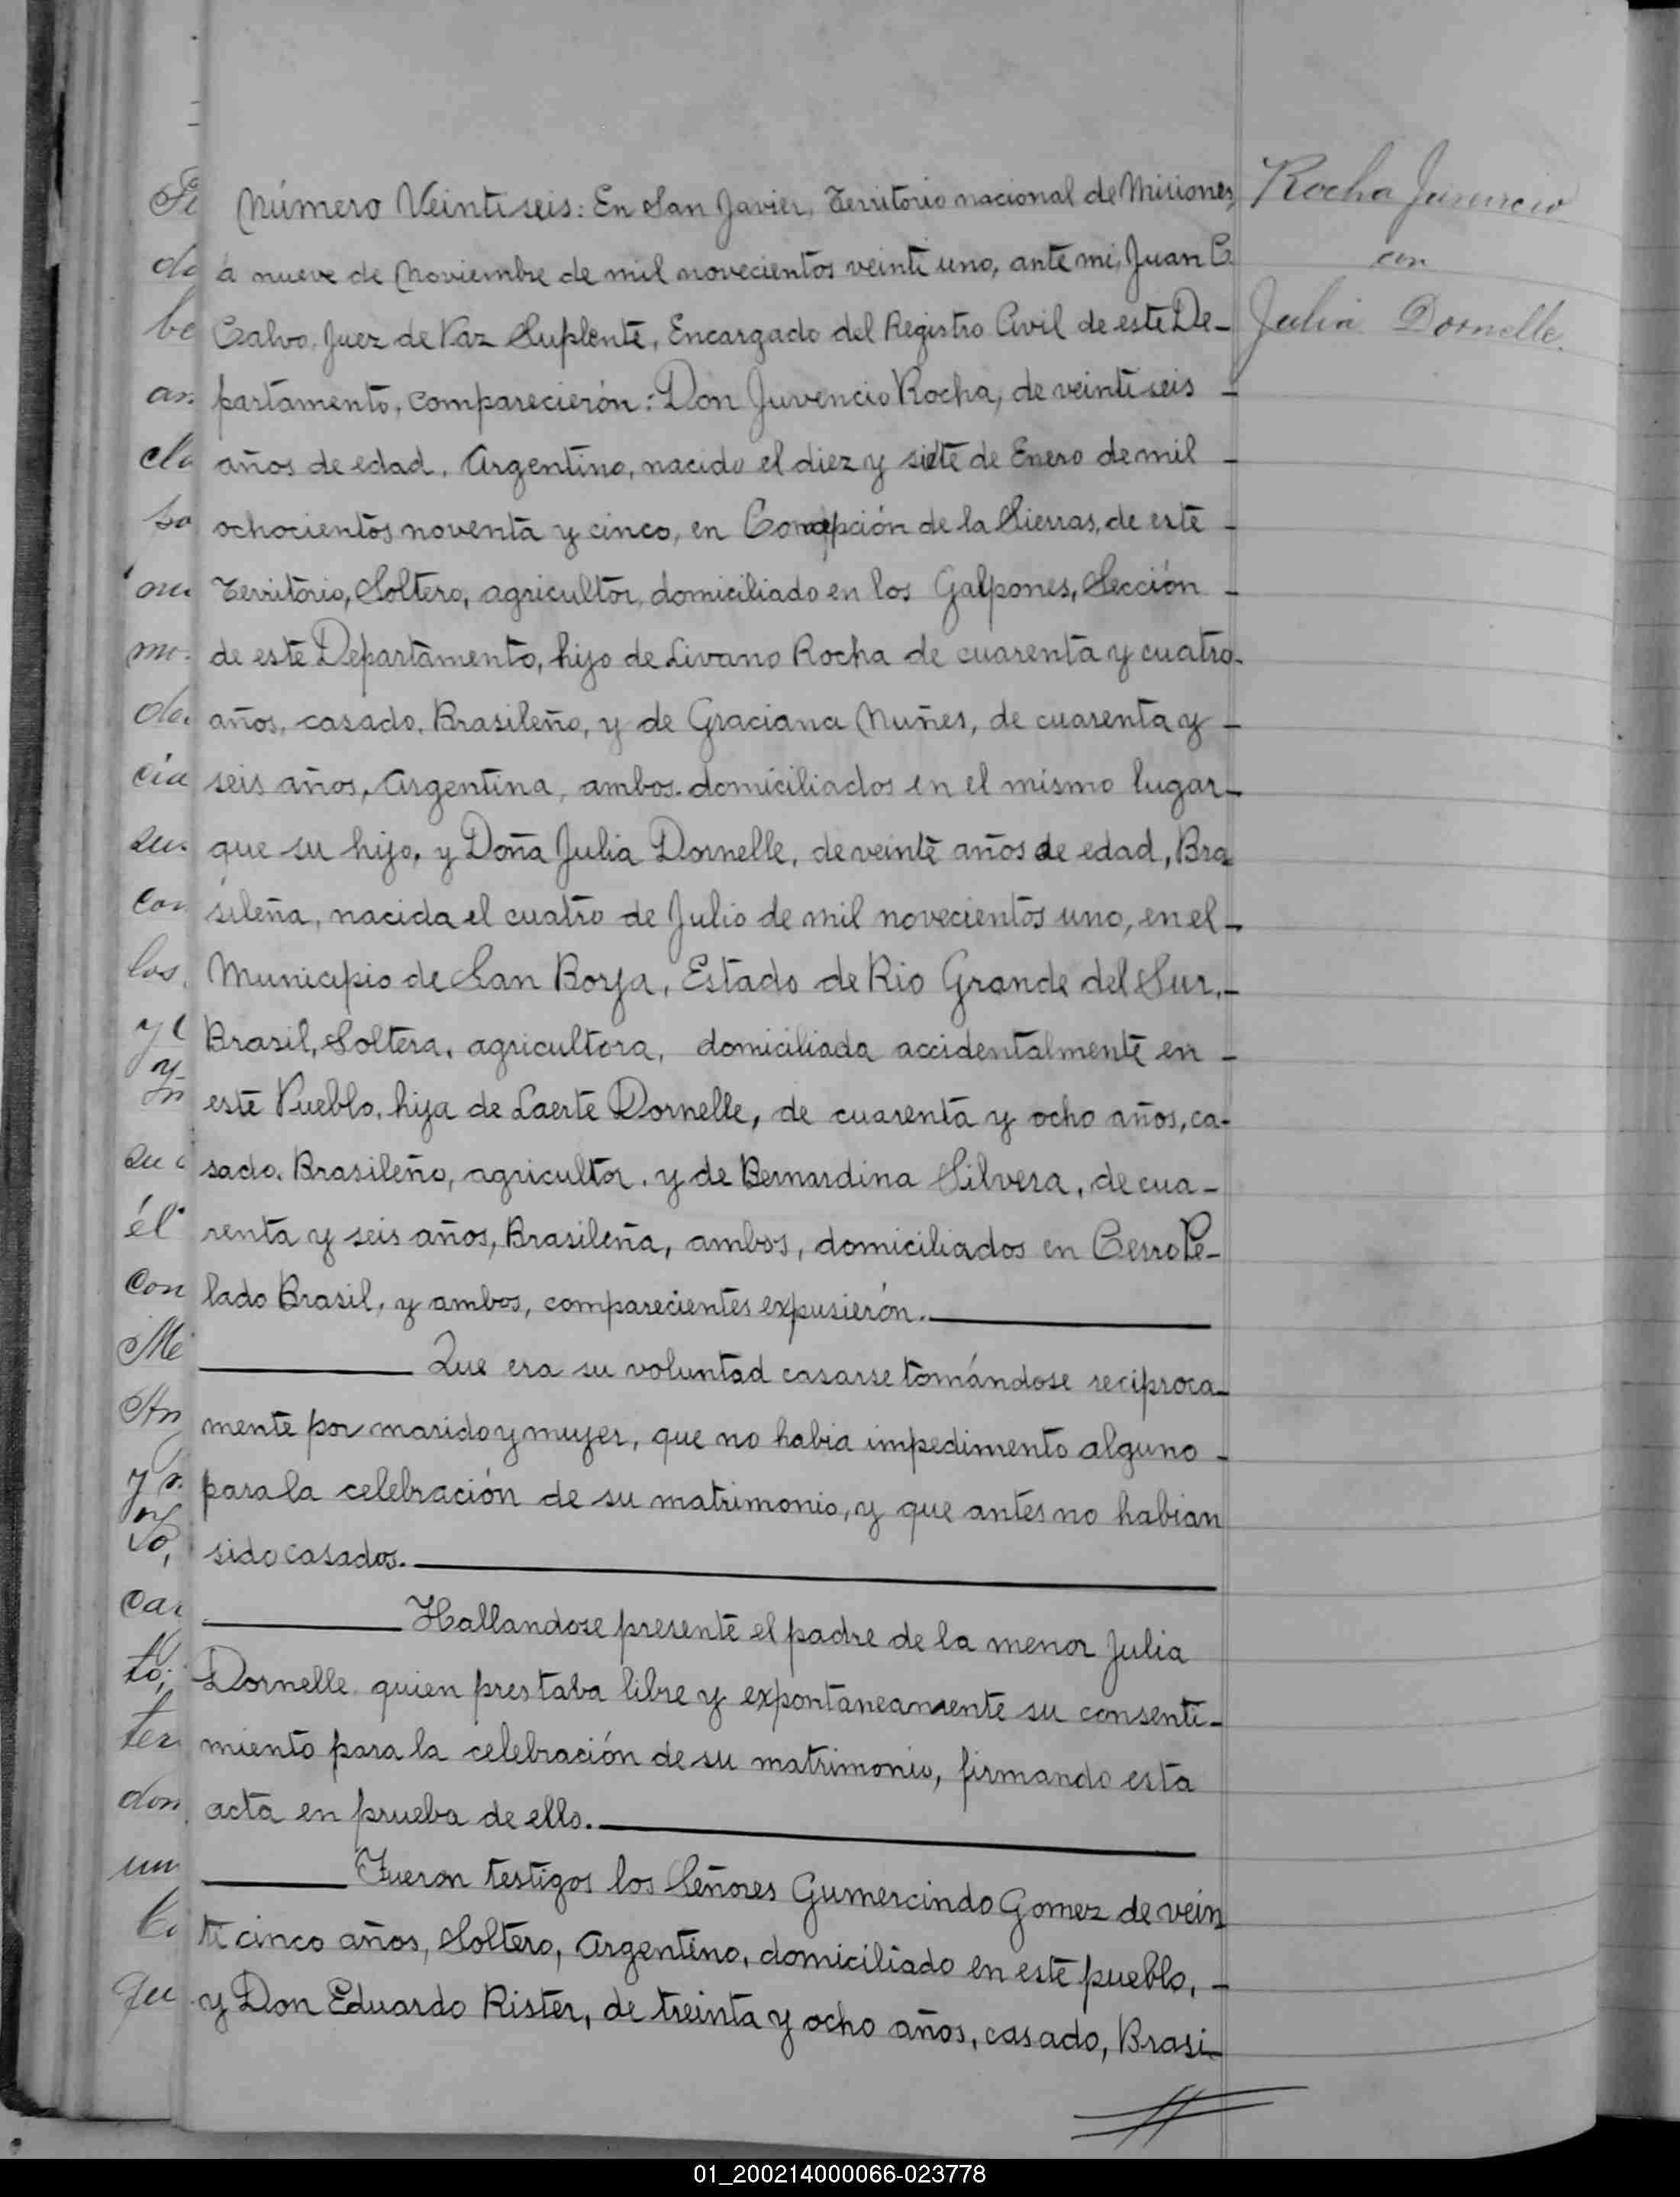 Número Veinti seis: En San Javier, Territorio nacional de Misiones,
á nueve de Noviembre de mil novecientos veinti uno, ante mi, Juan C.
Calvo, Juez de Paz Suplente, Encargado del Registro Civil de este De-
partamento, comparecierón: Don Juvencio Rocha, de veinti seis -
años de edad, Argentino, nacido el diez y siete de Enero de mil -
ochocientos noventa y cinco, en Concepción de la Sierras, de este -
Territorio, Soltero, agricultor, domiciliado en los Galpones, Sección -
de este Departamento, hijo de Livano Rocha de cuarenta y cuatro-
años, casado, Brasileño, y de Graciana Nuñes, de cuarenta y -
seis años, Argentina, ambos domiciliados en el mismo lugar-
que su hijo, y Doña Julia Dornelle, de veinte años de edad, Bra
sileña, nacida el cuatro de Julio de mil novecientos uno, en el -
Municipio de San Borja, Estado de Rio Grande del Sur,-
Brasil, Soltera, agricultora, domiciliada accidentalmente en -
este Pueblo, hija de Laerte Dornelle, de cuarenta y ocho años, ca-
sado, Brasileño, agricultor, y de Bernardina Silvera, de cua-
renta y seis años, Brasileña, ambos, domiciliados en Cerro Pe-
lado Brasil, y ambos, comparecientes expusierón.
Que era su voluntad casarse tomándose reciproca-
mente por marido y mujer, que no habia impedimento alguno -
para la celebración de su matrimonio, y que antes no habian
sido casados.
Hallandose presente el padre de la menor Julia
Dornelle quien prestaba libre y expontaneamente su consenti-
miento para la celebración de su matrimonio, firmando esta
acta en prueba de ello.
Fueron testigos los Señores Gumercindo Gomez de vein
ti cinco años, Soltero, Argentino, domiciliado en este pueblo, -
y Don Eduardo Rister, de treinta y ocho años, casado, Brasi-
Rocha Juvencio
con
Julia Dornelle.
01_200214000066-023778